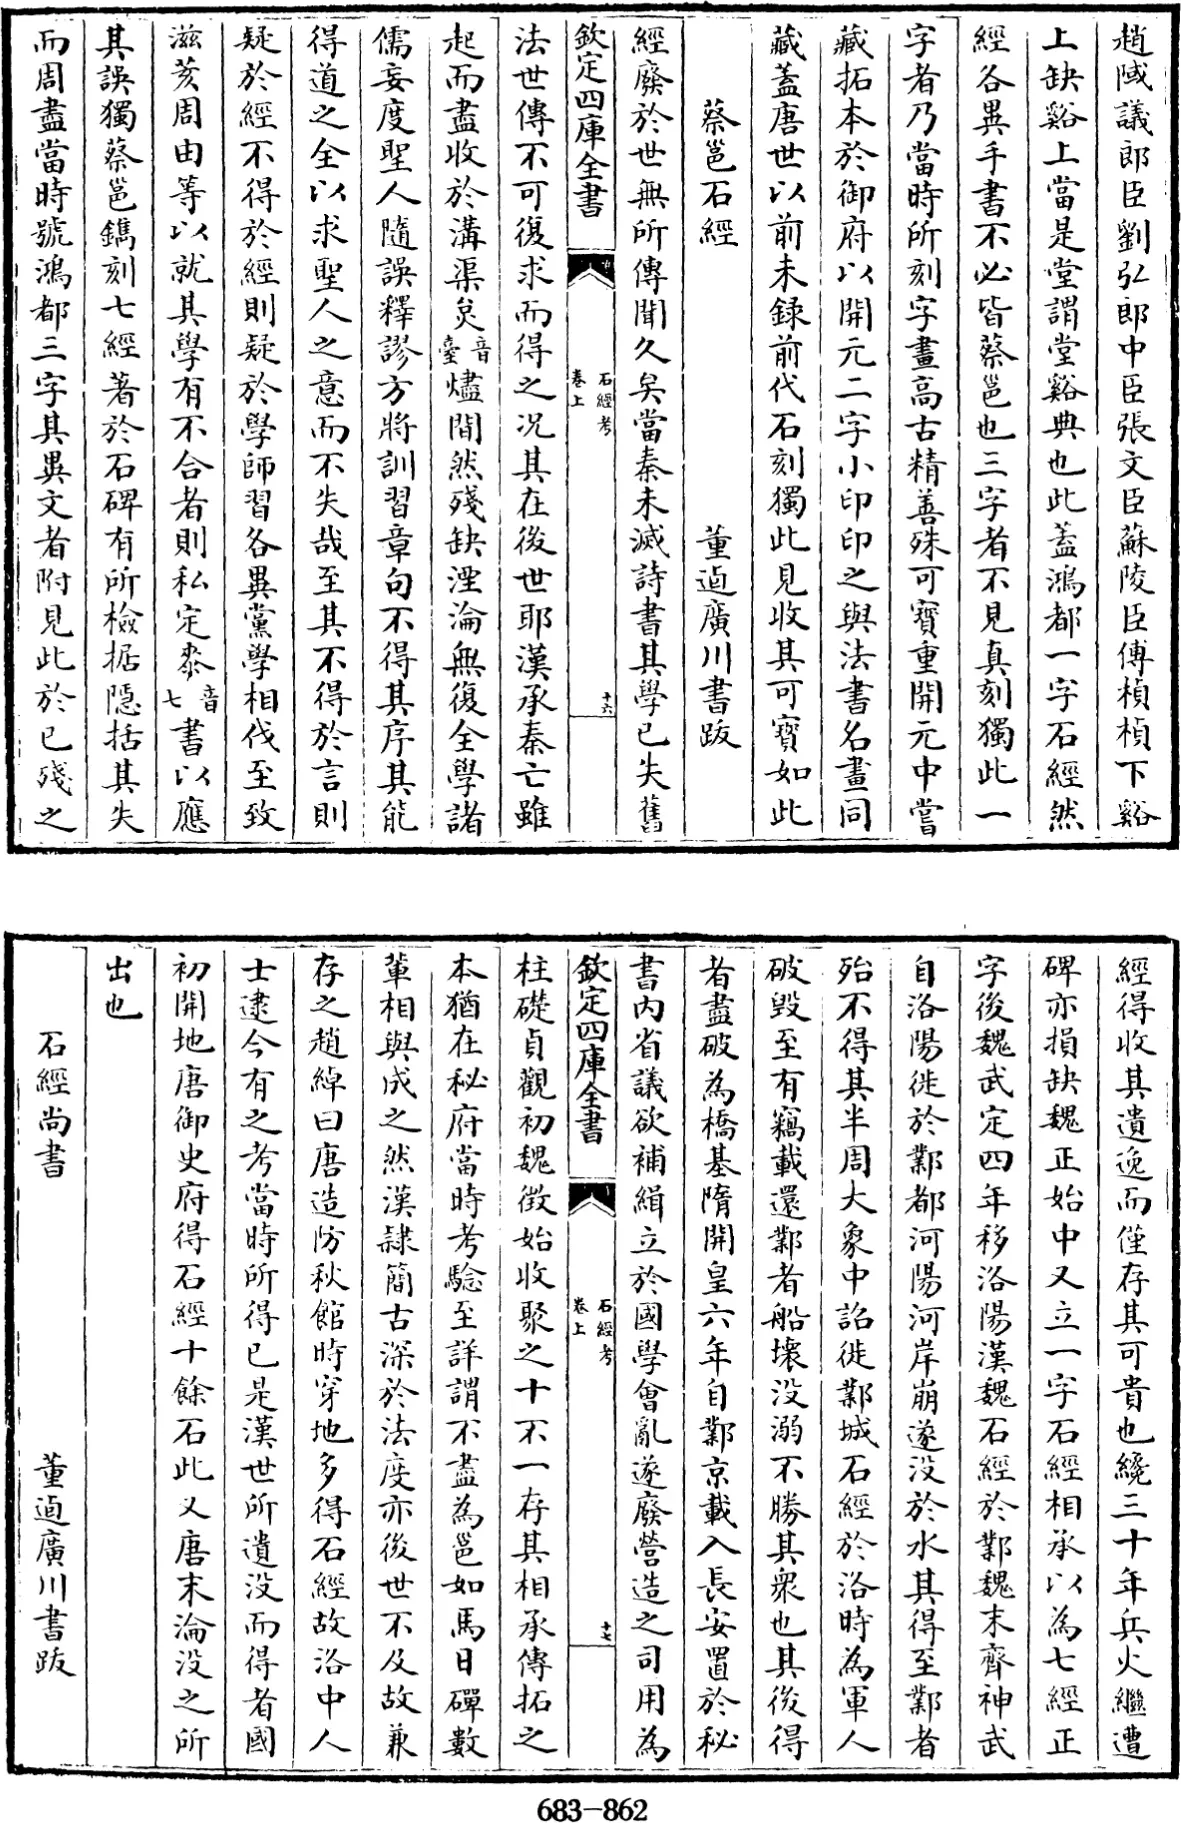 趙㦤議郎臣劉弘郎中臣張文臣蘇陵臣傅楨楨下谿
上缺谿上當是堂謂堂谿典也此蓋鴻都一字石經然
經各異手書不必皆蔡邕也三字者不見真刻獨此一
字者乃當時所刻字畫高古精善殊可寶重開元中嘗
藏拓本於御府以開元二字小印印之與法書名畫同
藏蓋唐世以前未録前代石刻獨此見收其可寶如此
蔡邕石經 董逌廣川書跋
經廢於世無所傳聞久矣當秦未滅詩書其學已失舊
欽定四庫全書 石經考 卷上 十六
法世傳不可復求而得之况其在後世耶漢承秦亡雖
起而盡收於溝渠炱音臺燼間然殘缺湮淪無復全學諸
儒妄度聖人隨誤釋謬方將訓習章句不得其序其能
得道之全以求聖人之意而不失哉至其不得於言則
疑於經不得於經則疑於學師習各異黨學相伐至致
滋亥周由等以就其學有不合者則私定桼音七書以應
其誤獨蔡邕鐫刻七經著於石碑有所檢据隱括其失
而周盡當時號鴻都三字其異文者附見此於已殘之
經得收其遺逸而僅存其可貴也纔三十年兵火繼遭
碑亦損缺魏正始中又立一字石經相承以為七經正
字後魏武定四年移洛陽漢魏石經於鄴魏末齊神武
自洛陽徙於鄴都河陽河岸崩遂沒於水其得至鄴者
殆不得其半周大象中詔徙鄴城石經於洛時為軍人
破毀至有竊載還鄴者船壞没溺不勝其衆也其後得
者盡破為橋基隋開皇六年自鄴京載入長安置於秘
書內省議欲補緝立於國學會亂遂廢營造之司用為
欽定四庫全書 石經考 卷上 十七
柱礎貞觀初魏徵始收聚之十不一存其相承傳拓之
本猶在秘府當時考驗至詳謂不盡為邕如馬日磾數
輩相與成之然漢隸簡古深於法度亦後世不及故兼
存之趙綽曰唐造防秋館時穿地多得石經故洛中人
士逮今有之考當時所得已是漢世所遺没而得者國
初開地唐御史府得石經十餘石此又唐末淪没之所
出也
石經尚書 董逌廣川書跋
683-862